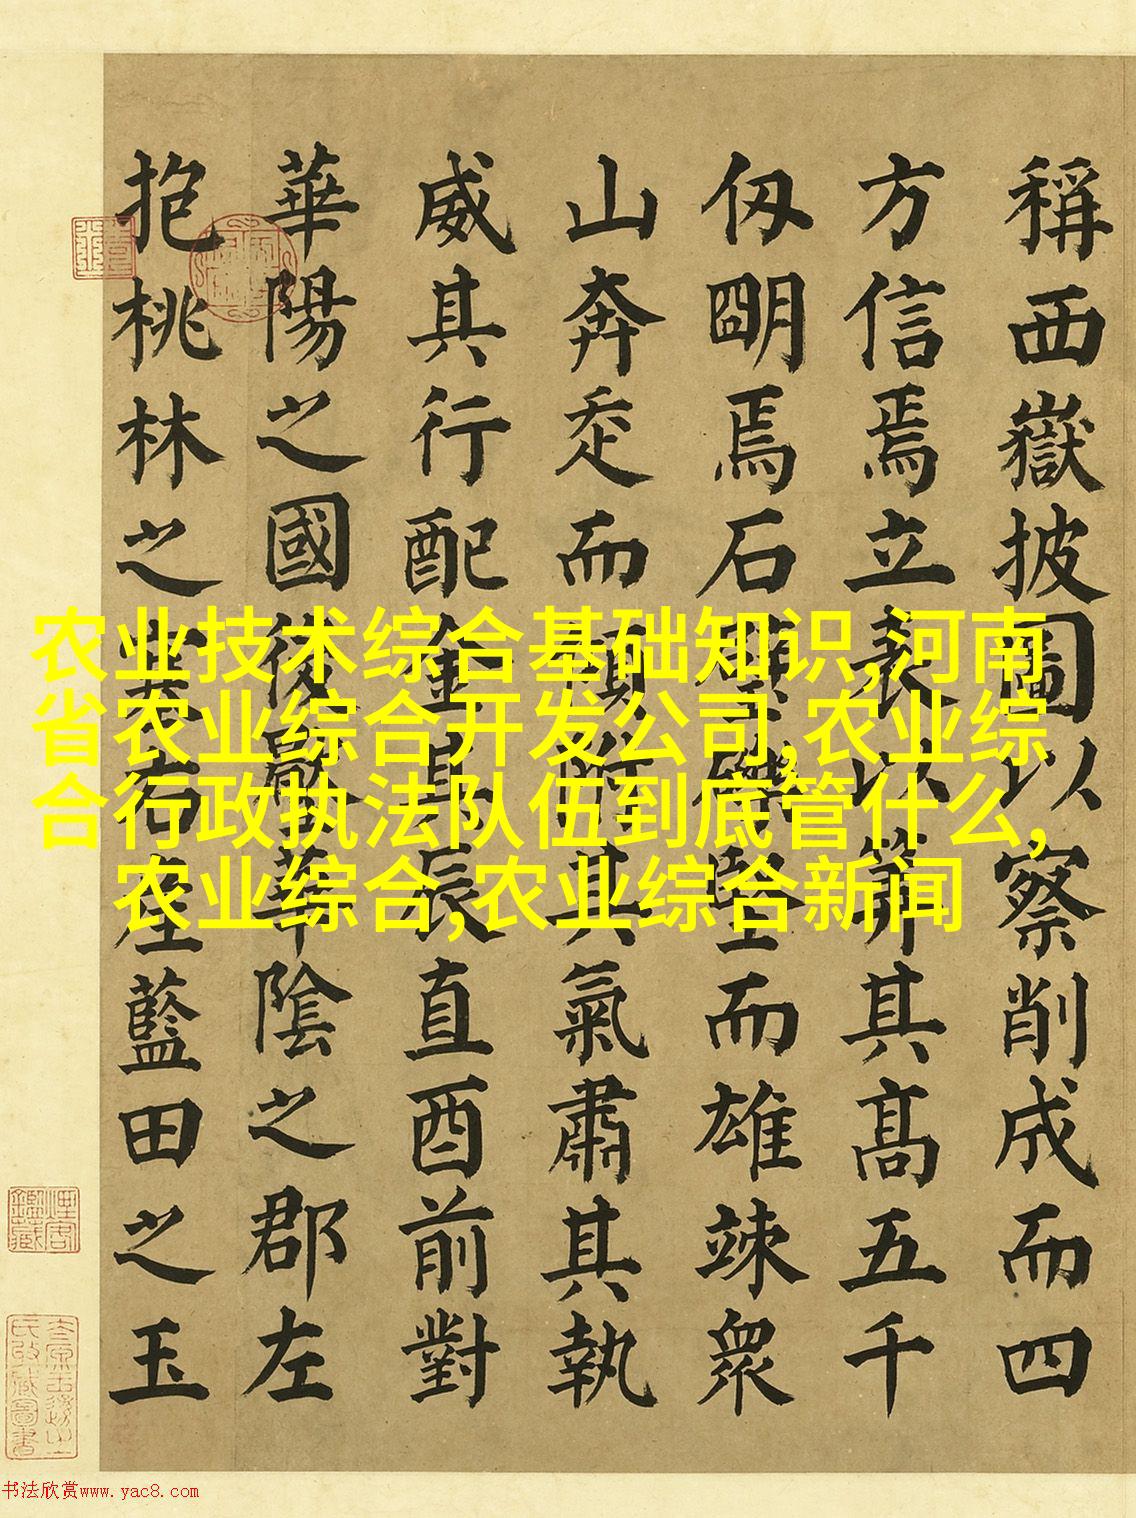 稱西嶽披圖以察削成而四
方信焉立表以筭其髙五千
仞朙焉石壁磔竪而雄竦眾
山奔走而傾附其氣肅其執
威其行配金其辰直酉前對
華陽之國後壓華陰之郡左
抱桃林之塞右產藍田之玉
农业技术综合基础知识,河南
省农业综合开发公司,农业综
合行政执法队伍到底管什么,
农业综合,农业综合新闻
书法欣赏www.yac8.com